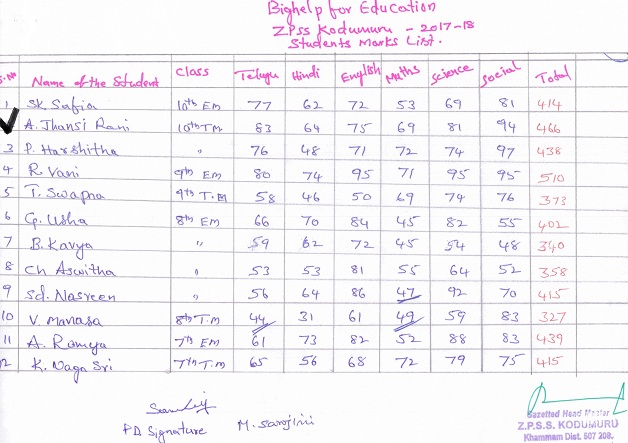 Bighelp for Education
ZPSS Kodumuru - 2017-18
Students Marks List.
S.No Name of the Student Class Telugu Hindi English Maths Science Social Total
1 Sk. Safia 10th EM 77 62 72 53 69 81 414
A. Jhansi Rani 10th T.M 83 64 75 69 81 94 466
3 P. Harshitha " 76 48 71 72 74 97 438
4 R. Vani 9th EM 80 74 95 71 95 95 510
5 T. Swapna 9th T.M 58 46 50 69 74 76 373
6 G. Usha 8th EM 66 70 84 45 82 55 402
7 B. Kavya " 59 62 72 45 54 48 340
8 Ch Aswitha " 53 53 81 55 64 52 358
9 Sd. Nasreen " 56 64 86 47 92 70 415
10 V. Manasa 8th T.M 44 31 61 49 59 83 327
11 A. Ramya 7th EM 61 73 82 52 88 83 439
12 K. Naga Sri 7th T.M 65 56 68 72 79 75 415
PD Signature M. Sarojini
Gazetted Head Master
Z.P.S.S. KODUMURU
Khammam Dist. 507 208.